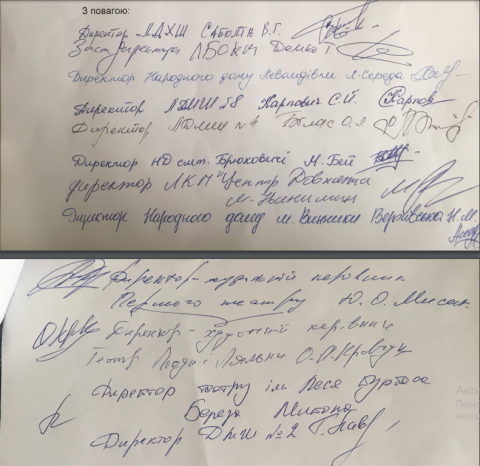 З повагою:
Директор ЛДХШ Сабелта В.Г.
Заст. директора ЛБОКМ Демко Г
Директор Народного дому Левандівки Л. Середа
Директор ЛДМШ №8 Карпович С.Й. Карпов
Директор № 4 О.Л
Директор НД смт. Брюховичі М. Бей
Директор ЛКМ "Центр Довженка
М.
Директор Народного дому м. Винники Н.М.
Директор - художній керівник
Першого театру Ю. О. Мисак
Директор - художній керівник
Театр Люди і Ляльки О.П.
Директор театру ім Леся Курбаса
Береза Микола
Директор ДМШ №2 Г.